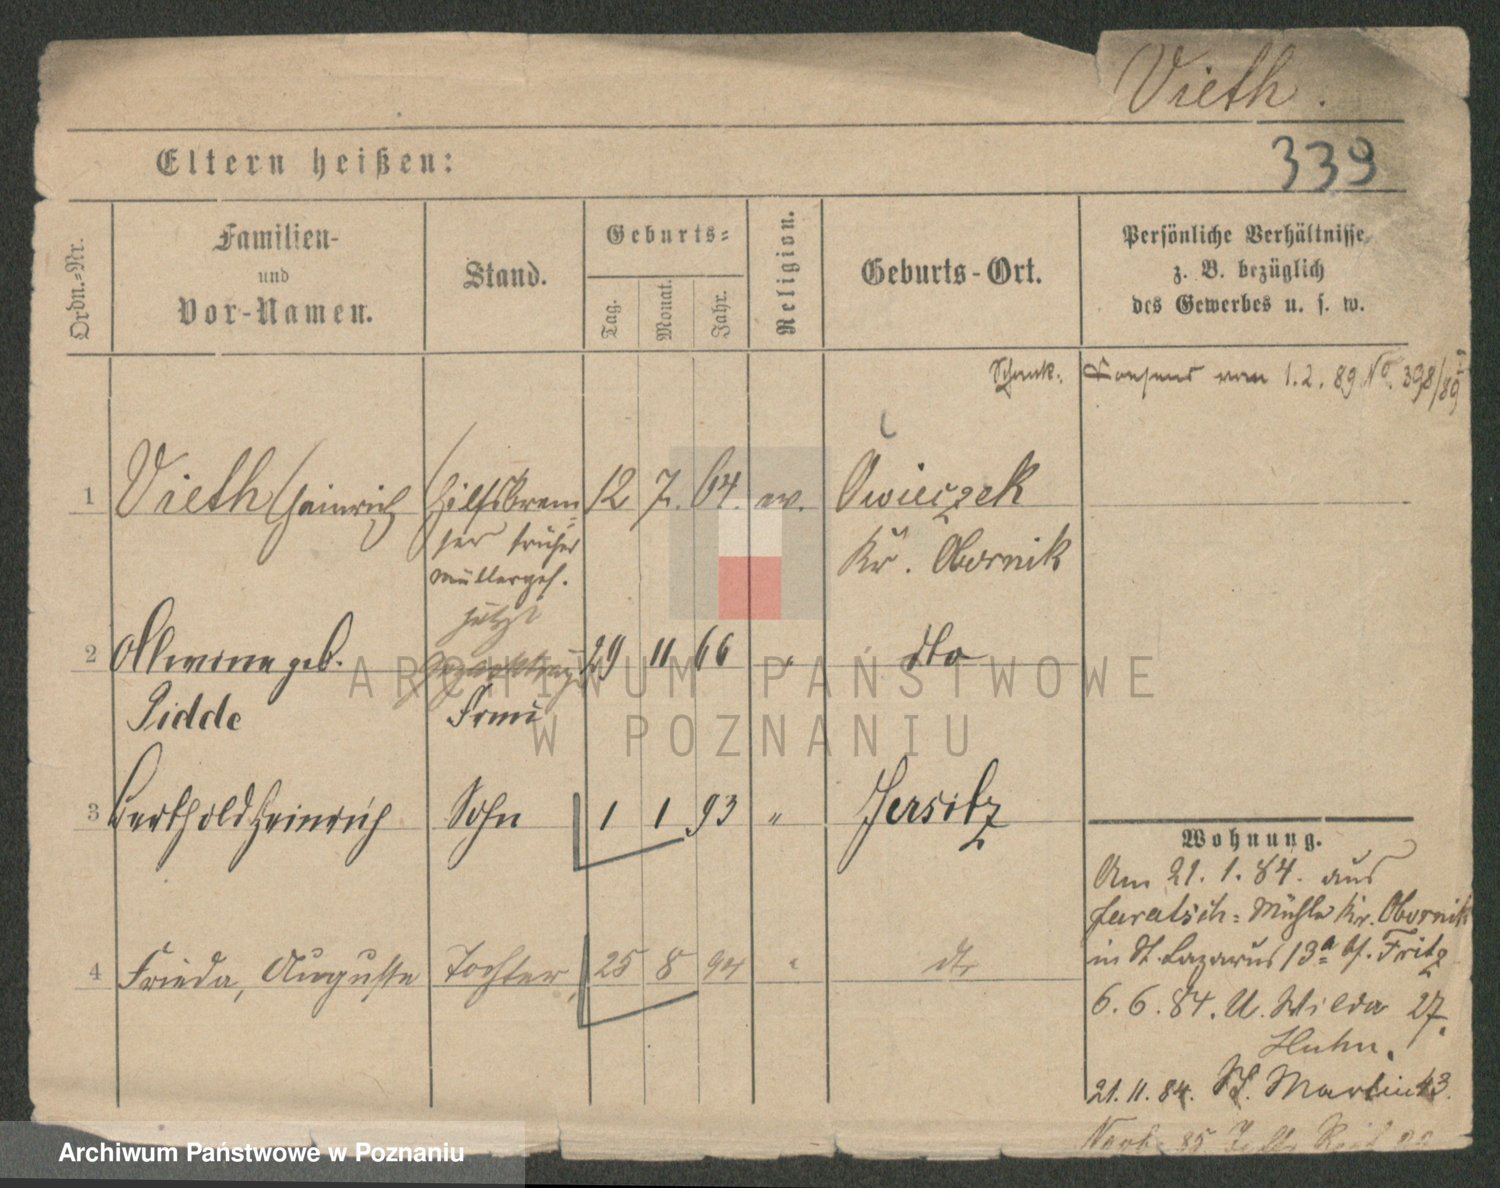 Vieth.
Eltern heißen:
339
Ordn.-Nr.
Familien-
und
Vor-Namen.
Stand.
Geburts-
Tag.
Monat.
Jahr.
Religion.
Geburts-Ort.
Persönliche Verhältnisse
z. B. bezüglich
des Gewerbes u. s. w.
Schank. Konsens vom 1.2.89 No. 398/89
1 Vieth Heinrich Hilfsbrem- 12 7. 64. ev. Owieczek
ser früher Kr. Obornik
Müllerges.
jetzt
2 Alwine geb. 29 11 66 " dto
Pidde Frau
3 Berthold Heinrich Sohn 1 1 93 " Jersitz
4 Frieda, Auguste Tochter 25 8 94 " dto
Wohnung.
Am 21.1.84. aus
Jaratsch-Mühle Kr. Obornik
in St. Lazarus 13a b/. Fritz
6.6.84. U. Wilda 27.
Huhn.
21.11.84. St. Martin 43.
85
ARCHIWUM PAŃSTWOWE
W POZNANIU
Archiwum Państwowe w Poznaniu